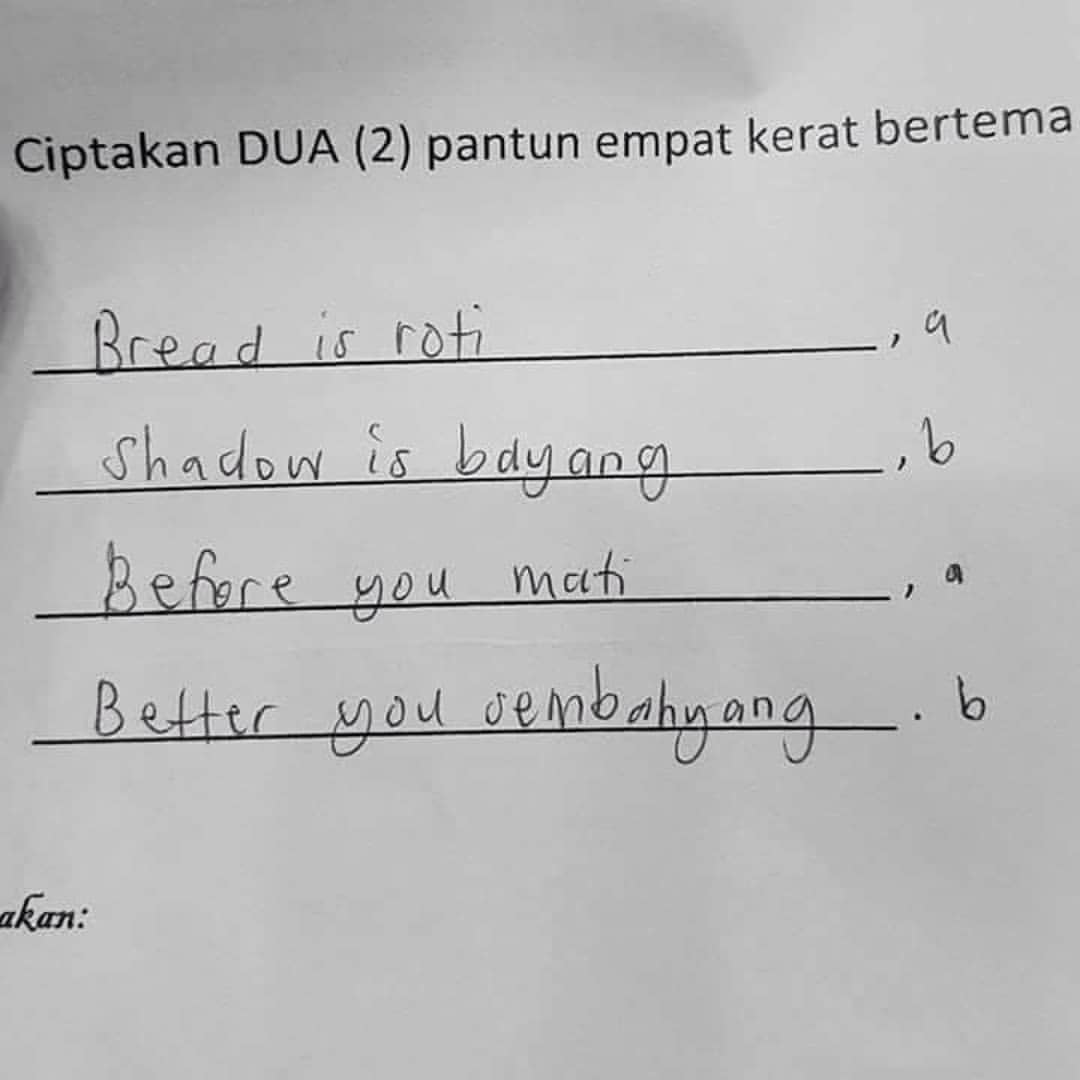 Ciptakan DUA (2) pantun empat kerat bertema
Bread is roti, a
Shadow is bayang, b
Before you mati, a
Better you sembahyang. b
akan: